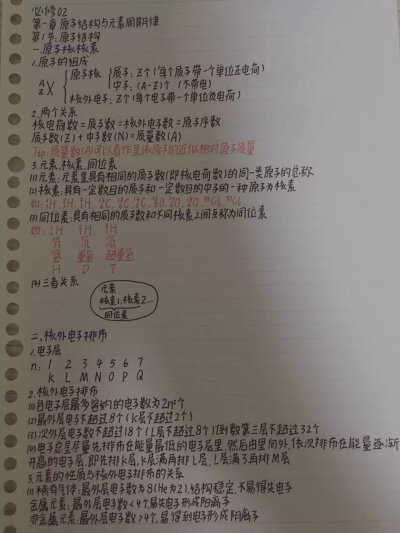 必修02
第一章 原子结构与元素周期律
第1节 原子结构
一、原子核 核素
1.原子的组成
原子核 质子:Z个(每个质子带一个单位正电荷)
A Z X 中子:(A-Z)个 (不带电)
核外电子:Z个(每个电子带一个单位负电荷)
2.两个关系
核电荷数=质子数=核外电子数=原子序数
质子数(Z)+中子数(N)=质量数(A)
Tip:质量数(A)可以看作是该原子的近似相对原子质量
3.元素、核素、同位素
(1)元素:元素是具有相同的质子数(即核电荷数)的同一类原子的总称
(2)核素:具有一定数目的质子和一定数目的中子的一种原子为核素
(3)同位素:具有相同的质子数和不同核素之间互称为同位素
如:¹₁H ²₁H ³₁H
氕 氘 氚
氢 重氢 超重氢
H D T
(4)三者关系
元素
核素1、核素2…
同位素
二、核外电子排布
1.电子层
n: 1 2 3 4 5 6 7
K L M N O P Q
2.核外电子排布
(1)各电子层最多容纳的电子数为2n²个
(2)最外层电子不超过8个(K层不超过2个)
(3)次外层电子数不超过18个(L层不超过8个)倒数第三层不超过32个
(4)电子总是尽量先排布在能量最低的电子层里,然后由里向外,依次排布在能量逐渐
升高的电子层,即先排K层,K层满再排L层,L层满了再排M层
3.元素的性质与核外电子排布的关系
(1)稀有气体:最外层电子数为8(He为2),结构稳定,不易得失电子
金属元素:最外层电子数<4个易失电子形成阳离子
非金属元素:最外层电子数>4个,易得到电子形成阴离子